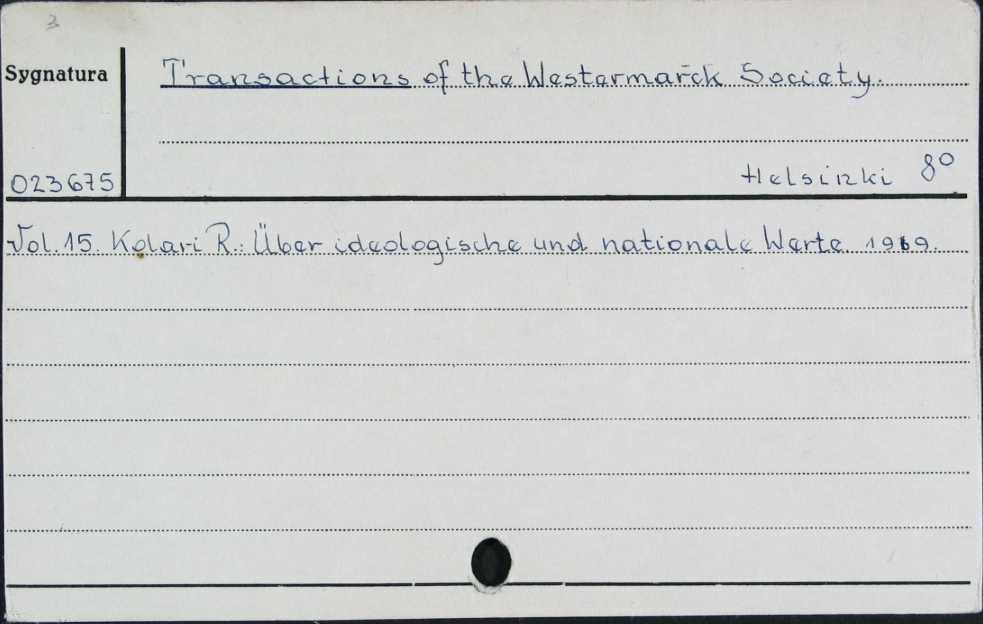 3
Sygnatura
Transactions of the Westermarck Society.
023675
Helsinki 8°
Vol. 15. Kolari R.: Über ideologische und nationale Werte. 1969.